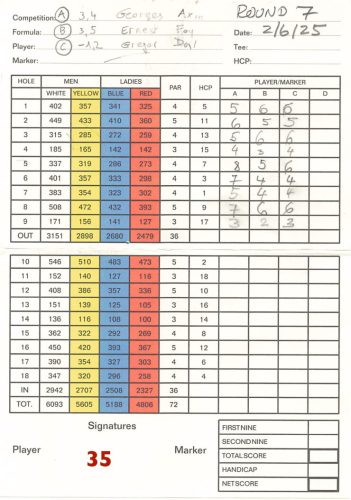 Competition: A 3,4 Georges ROUND 7
Formula: B 3,5 Ernest Date: 2/6/25
Player: C -1,2 Gregor Tee:
Marker: HCP:
HOLE MEN LADIES PAR HCP PLAYER/MARKER
WHITE YELLOW BLUE RED A B C D
1 402 357 341 325 4 5 5 6 6
2 449 433 410 360 5 11 6 5 5
3 315 285 272 259 4 13 5 6 6
4 185 165 142 142 3 15 4 3 4
5 337 319 286 273 4 7 8 5 6
6 401 357 333 298 4 3 7 4 4
7 383 354 323 302 4 1 5 4 4
8 508 472 432 393 5 9 7 6 6
9 171 156 141 127 3 17 3 2 3
OUT 3151 2898 2680 2479 36
10 546 510 483 473 5 2
11 152 140 127 116 3 18
12 408 386 357 336 5 10
13 151 139 125 105 3 16
14 136 116 108 100 3 14
15 362 322 292 269 4 8
16 450 420 393 367 5 12
17 390 354 327 303 4 6
18 347 320 296 258 4 4
IN 2942 2707 2508 2327 36
TOT. 6093 5605 5188 4806 72
Signatures
Player 35 Marker
FIRST NINE
SECOND NINE
TOTAL SCORE
HANDICAP
NET SCORE